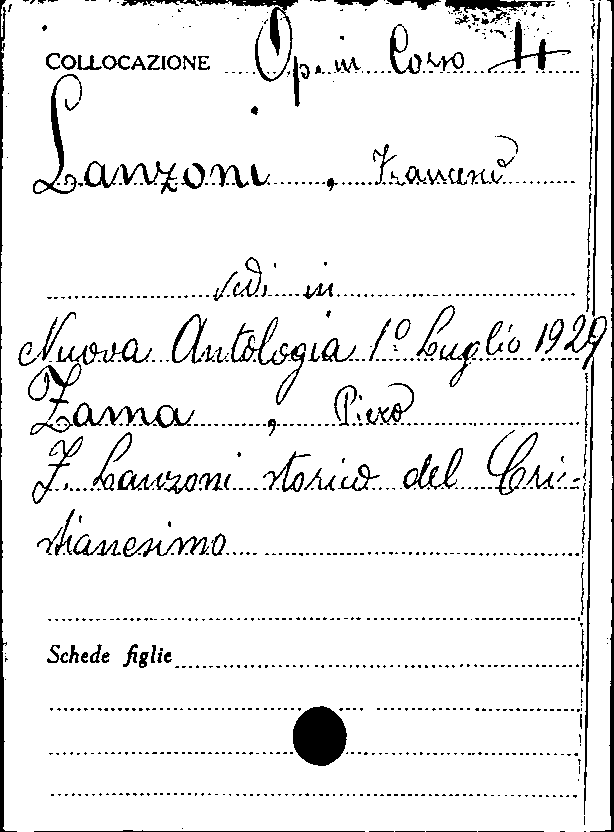 COLLOCAZIONE Op. in Corso H
Lanzoni, Francesco
vedi in
Nuova Antologia 1º Luglio 1929
Zama, Piero
F. Lanzoni storico del Cri-
stianesimo
Schede figlie